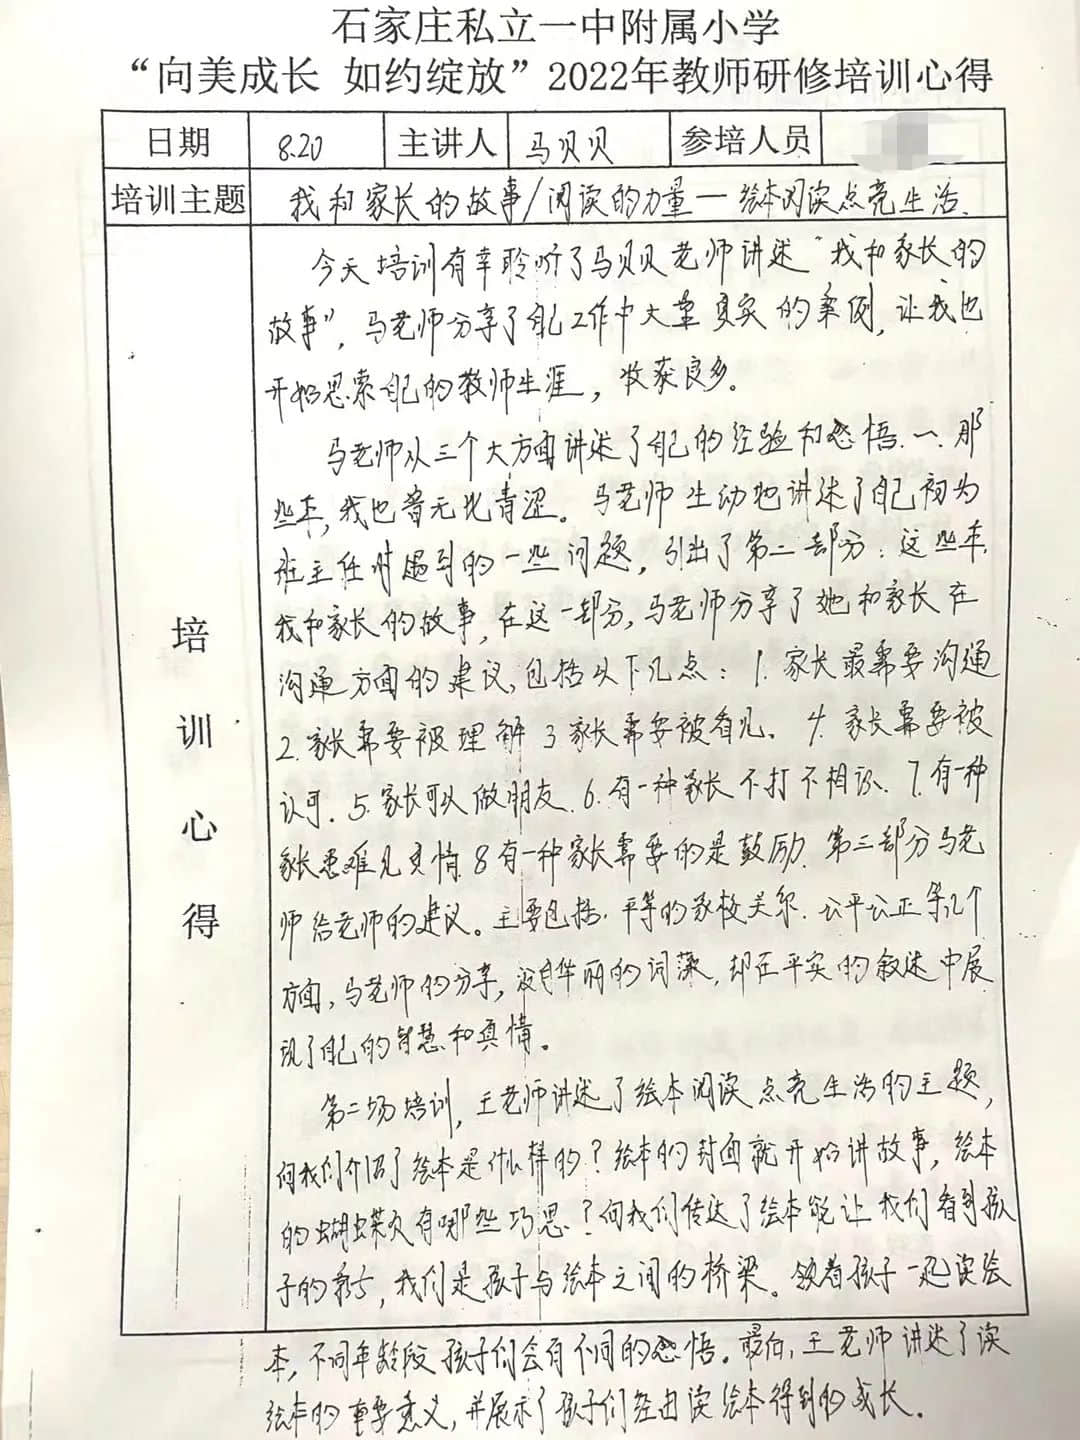 石家庄私立一中附属小学
“向美成长 如约绽放”2022年教师研修培训心得
日期 8.20 主讲人 马贝贝 参培人员
培训主题 我和家长的故事/阅读的力量—绘本阅读点亮生活.
培训心得
今天培训有幸聆听了马贝贝老师讲述“我和家长的
故事”,马老师分享了自己工作中大量真实的案例,让我也
开始思索自己的教师生涯,收获良多。
马老师从三个大方面讲述了自己的经验和感悟.一.那
些年,我也曾无比青涩。马老师生动地讲述了自己初为
班主任时遇到的一些问题,引出了第二部分:这些年
我和家长的故事,在这一部分,马老师分享了她和家长在
沟通方面的建议,包括以下几点:1.家长最需要沟通
2.家长需要被理解 3.家长需要被看见.4.家长需要被
认可.5.家长可以做朋友.6.有一种家长不打不相识.7.有一种
家长患难见真情 8.有一种家长需要的是鼓励.第三部分马老
师给老师的建议。主要包括.平等的家校关系.公平公正等几个
方面,马老师的分享,没有华丽的词藻,却在平实的叙述中展
现了自己的智慧和真情。
第二场培训,王老师讲述了绘本阅读点亮生活的主题,
向我们介绍了绘本是什么样的?绘本的封面就开始讲故事,绘本
的蝴蝶页有哪些巧思?向我们传达了绘本能让我们看到孩
子的,我们是孩子与绘本之间的桥梁。领着孩子一起读绘
本,不同年龄段孩子们会有不同的感悟。最后,王老师讲述了读
绘本的重要意义,并展示了孩子们经由读绘本得到的成长。